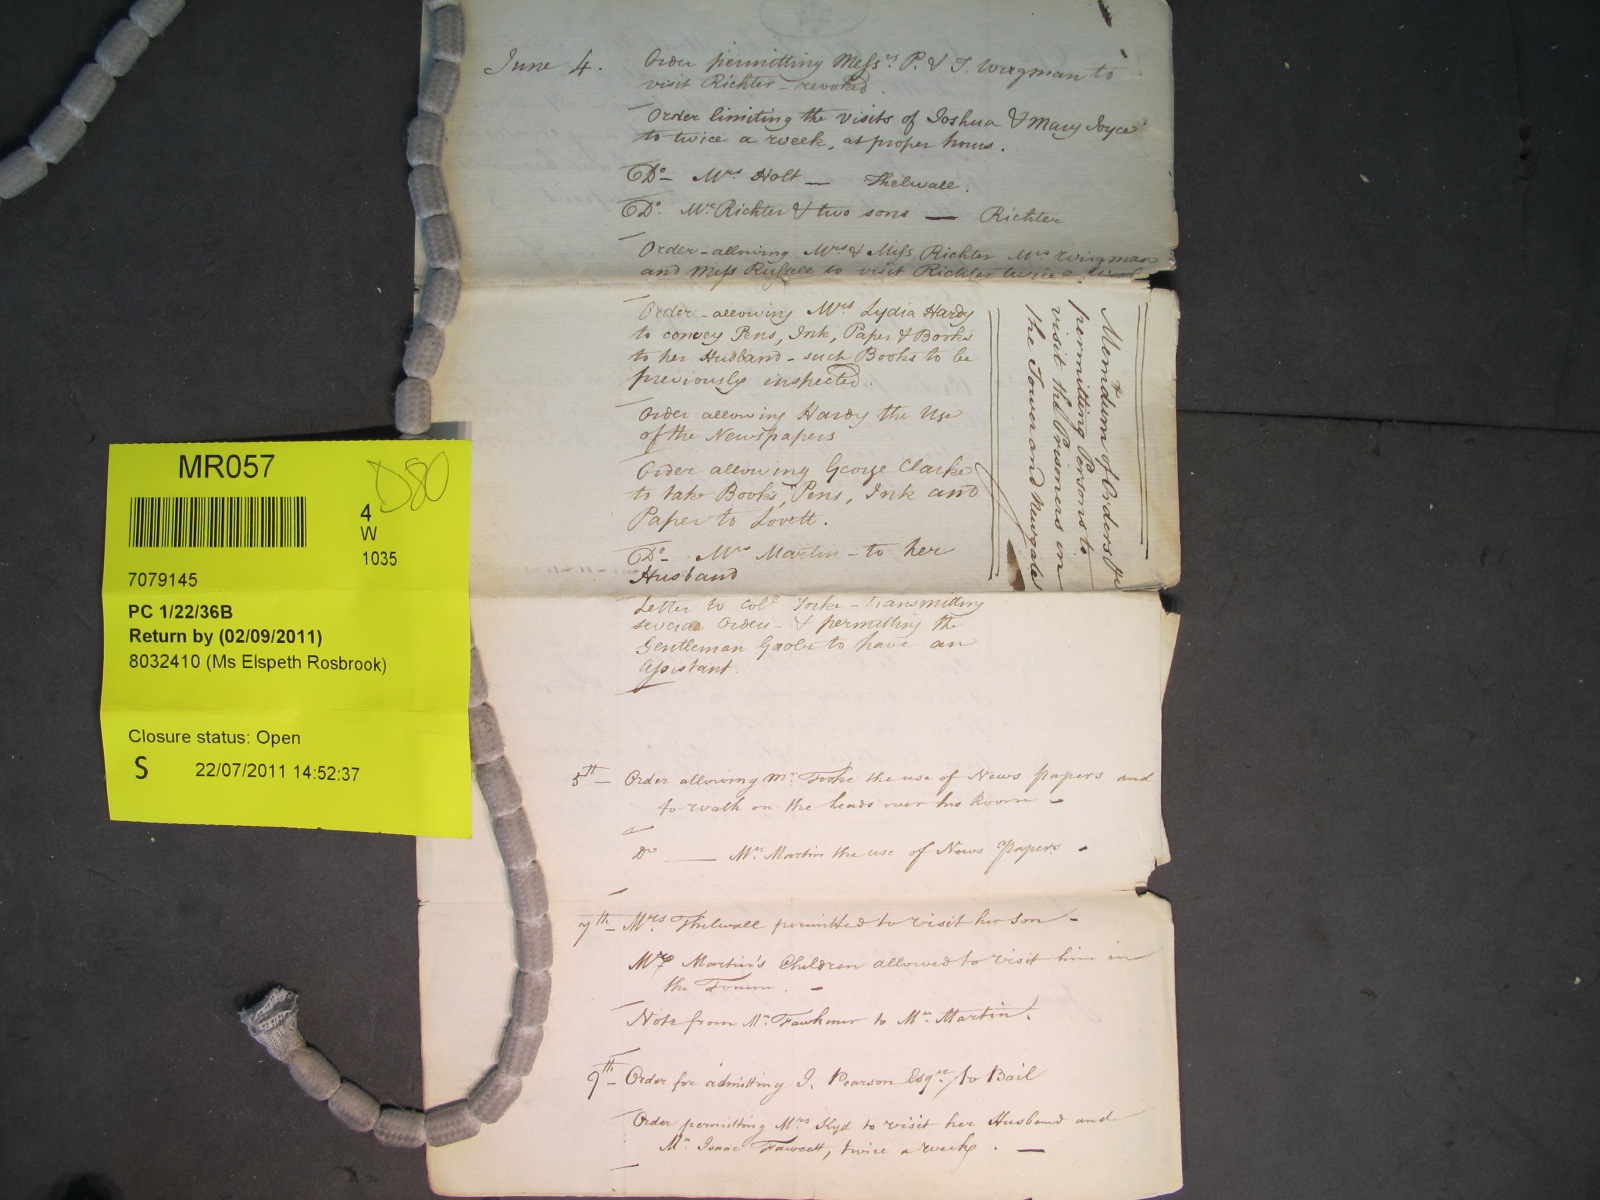 June 4. Order permitting Mess.rs P. & T. Wirgman to
visit Richter - revoked.
Order limiting the visits of Joshua & Mary Joyce
to twice a week, at proper hours.
Do - Mrs Holt — Thelwall.
Do. Mr Richter & two sons — Richter
Order - allowing Mrs & Miss Richter Mrs Wirgman
and Miss Russell to visit Richter twice a week
Order - allowing Mrs Lydia Hardy
to convey Pens, Ink, Paper & Books
to her Husband - such Books to be
previously inspected.
Order allowing Hardy the Use
of the Newspapers
Order allowing George Clarke
to take Books, Pens, Ink and
Paper to Lovett.
Do - Mrs Martin - to her
Husband
Letter to Coll. Yorke - transmitting
several Orders - & permitting the
Gentleman Gaoler to have an
Assistant.
5th - Order allowing Mr. Tooke the use of News papers and
to walk on the leads over his Room -
Do — Mr. Martin the use of News Papers.
7th - Mrs Thelwall permitted to visit her Son -
Mr Martin's Children allowed to visit him in
the Tower. -
Note from Mr. Fawkener to Mr. Martin.
9th - Order for admitting J. Pearson Esqre. to Bail
Order permitting Mrs Kyd to visit her Husband and
Mr Isaac Fawcett, twice a week. —
Memdum of Orders for
permitting Persons to
visit the Prisoners in
the Tower and Newgate
MR057
D80
4
W
1035
7079145
PC 1/22/36B
Return by (02/09/2011)
8032410 (Ms Elspeth Rosbrook)
Closure status: Open
S 22/07/2011 14:52:37